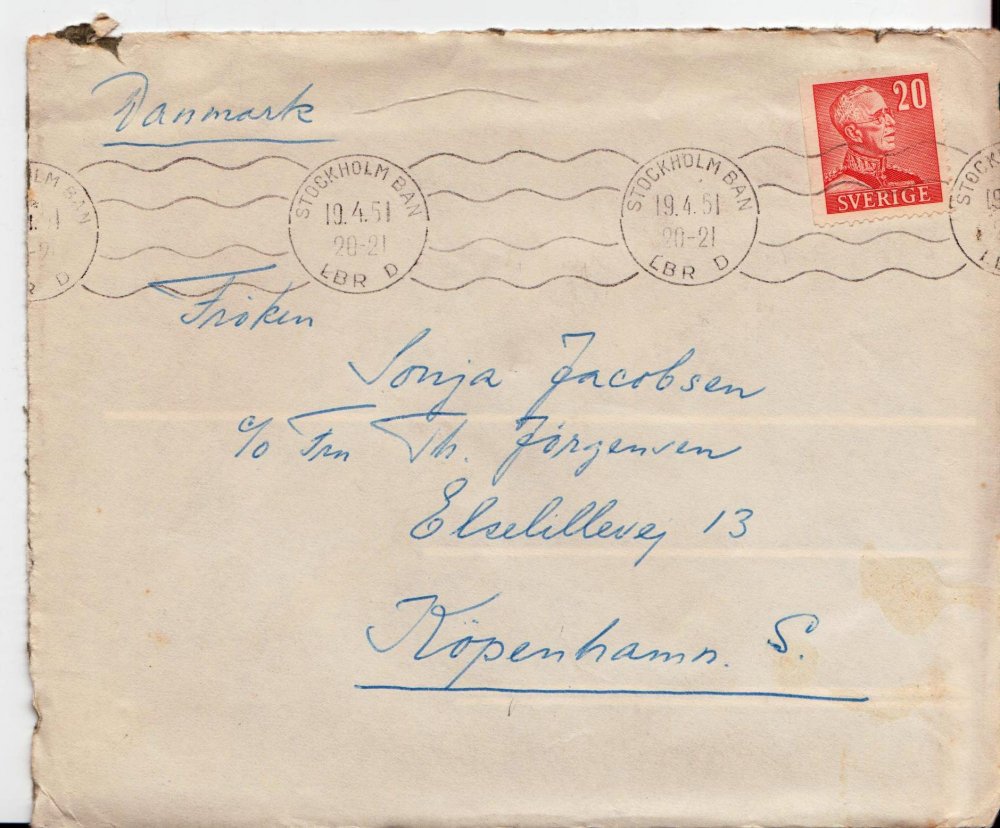 Danmark
20
SVERIGE
LM BAN
STOCKHOLM BAN
19.4.51
20-21
LBR D
STOCKHOLM BAN
19.4.51
20-21
LBR D
STOCKH
19
Fröken
Sonja Jacobsen
c/o Fru Th. Jörgensen
Elselillevej 13
Köpenhamn. S.